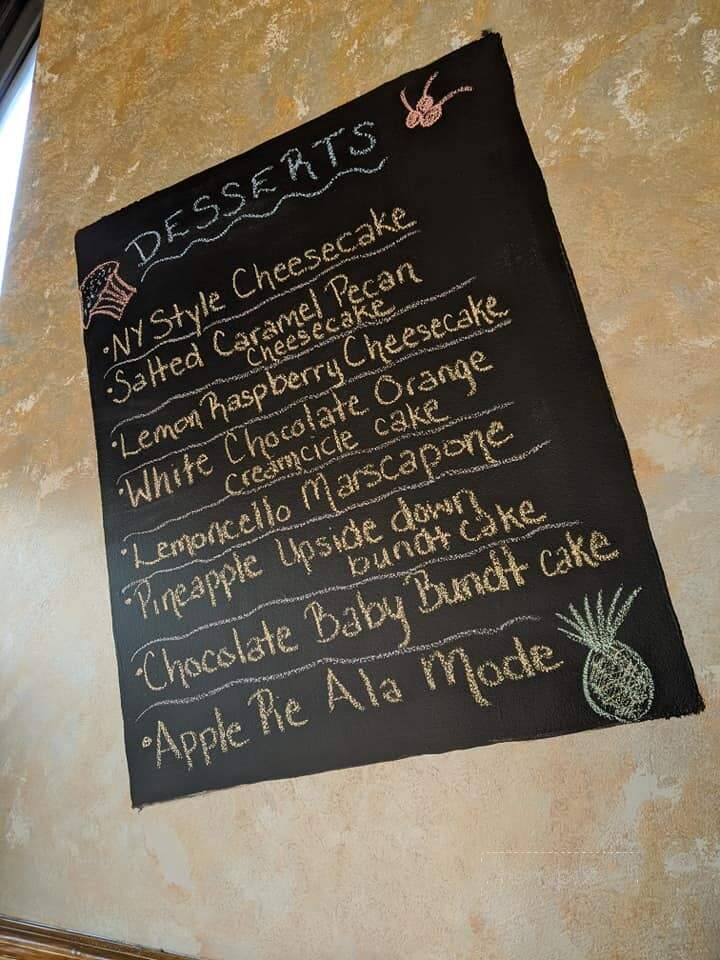 DESSERTS
·NY Style Cheesecake
·Salted Caramel Pecan
Cheesecake
·Lemon Raspberry Cheesecake
·White Chocolate Orange
creamcicle cake
·Lemoncello Marscapone
·Pineapple Upside down
bundt cake
·Chocolate Baby Bundt cake
·Apple Pie Ala Mode